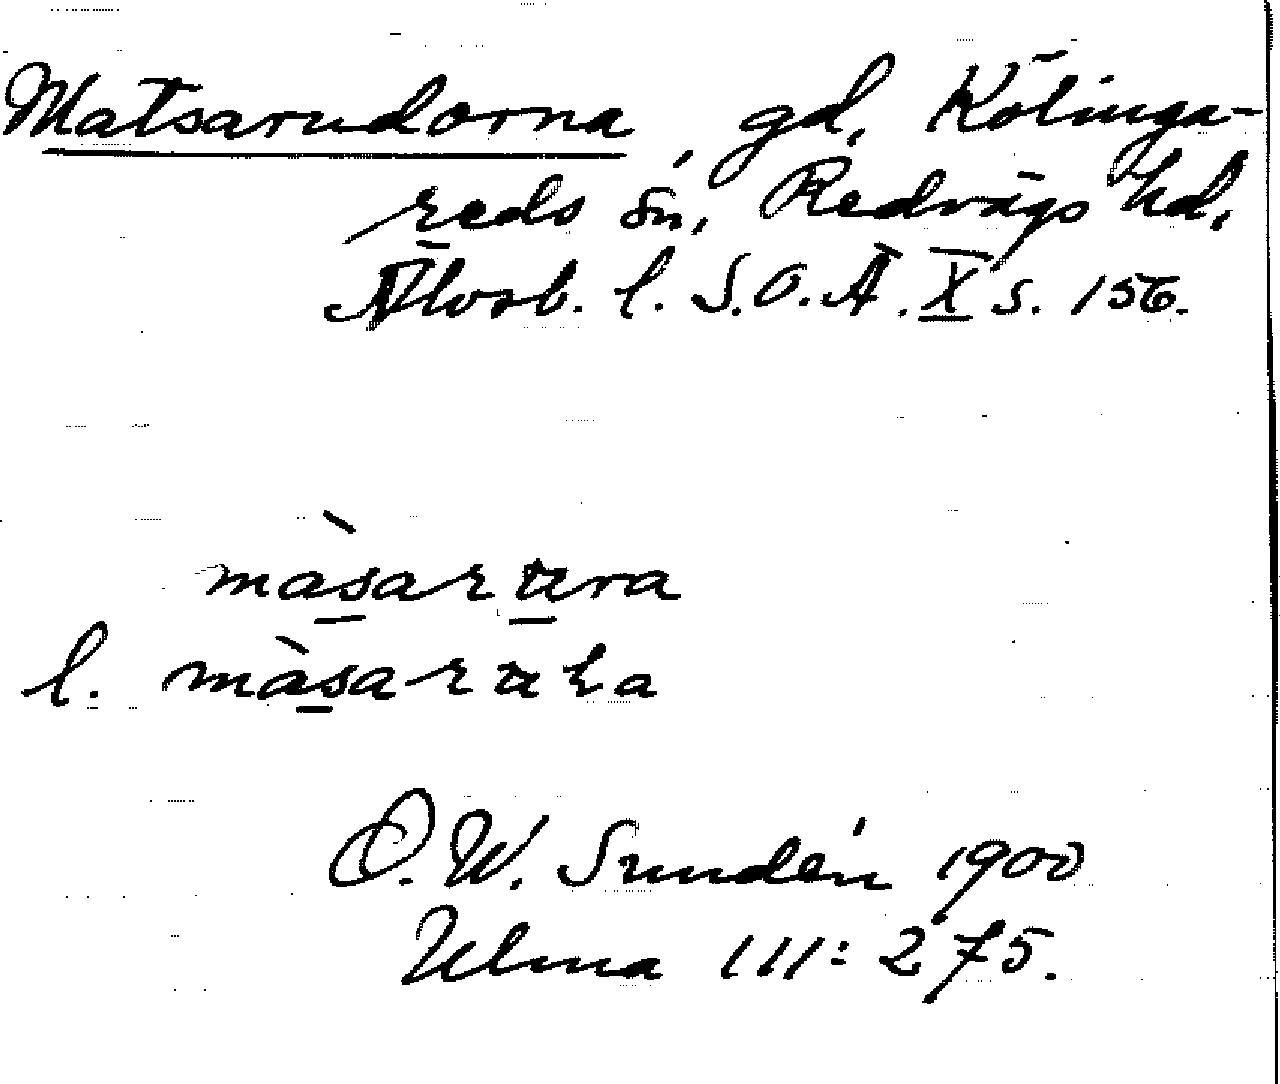 Matsarudorna gd, Kölinga-
reds sn, Redvägs hd,
Älvsb. l. S.O.Ä. X s. 156.
màsar
l. màsar
O.W. Sundén 1900
Ulma 111: 275.